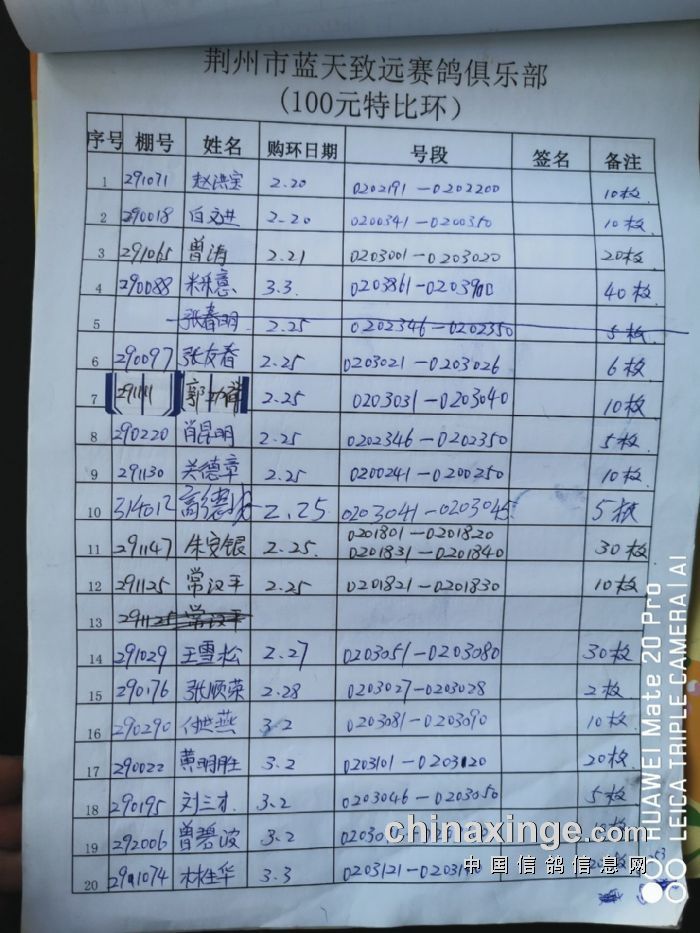 荆州市蓝天致远赛鸽俱乐部
(100元特比环)
序号 棚号 姓名 购环日期 号段 签名 备注
1 291071 赵洪宝 2.20 0202191-0202200 10枚
2 290018 白文进 2.20 0200341-0200350 10枚
3 291065 曾涛 2.21 0203001-0203020 20枚
4 290088 3.3. 0203861-0203900 40枚
5 张春明 2.25 0202346-0202350 5枚
6 290097 张友春 2.25 0203021-0203026 6枚
7 291111 郭 2.25 0203031-0203040 10枚
8 290220 肖昆明 2.25 0202346-0202350 5枚
9 291130 关德章 2.25 0200241-0200250 10枚
10 314012 高德 2.25 0203041-0203045 5枚
11 291147 朱安银 2.25. 0201801-0201820
0201831-0201840 30枚
12 291125 常汉平 2.25 0201821-0201830 10枚
13 291125 常汉平
14 291029 王雪松 2.27 0203051-0203080 30枚
15 290176 张顺荣 2.28 0203027-0203028 2枚
16 290290 燕 3.2 0203081-0203090 10枚
17 290022 黄明胜 3.2 0203101-0203120 20枚
18 290195 刘三才 3.2 0203046-0203050 5枚
19 292006 曾碧波 3.2
20 291074 林生华 3.3 0203121-
chinaxinge.com
中国信鸽信息网
HUAWEI Mate 20 Pro
LEICA TRIPLE CAMERA | AI